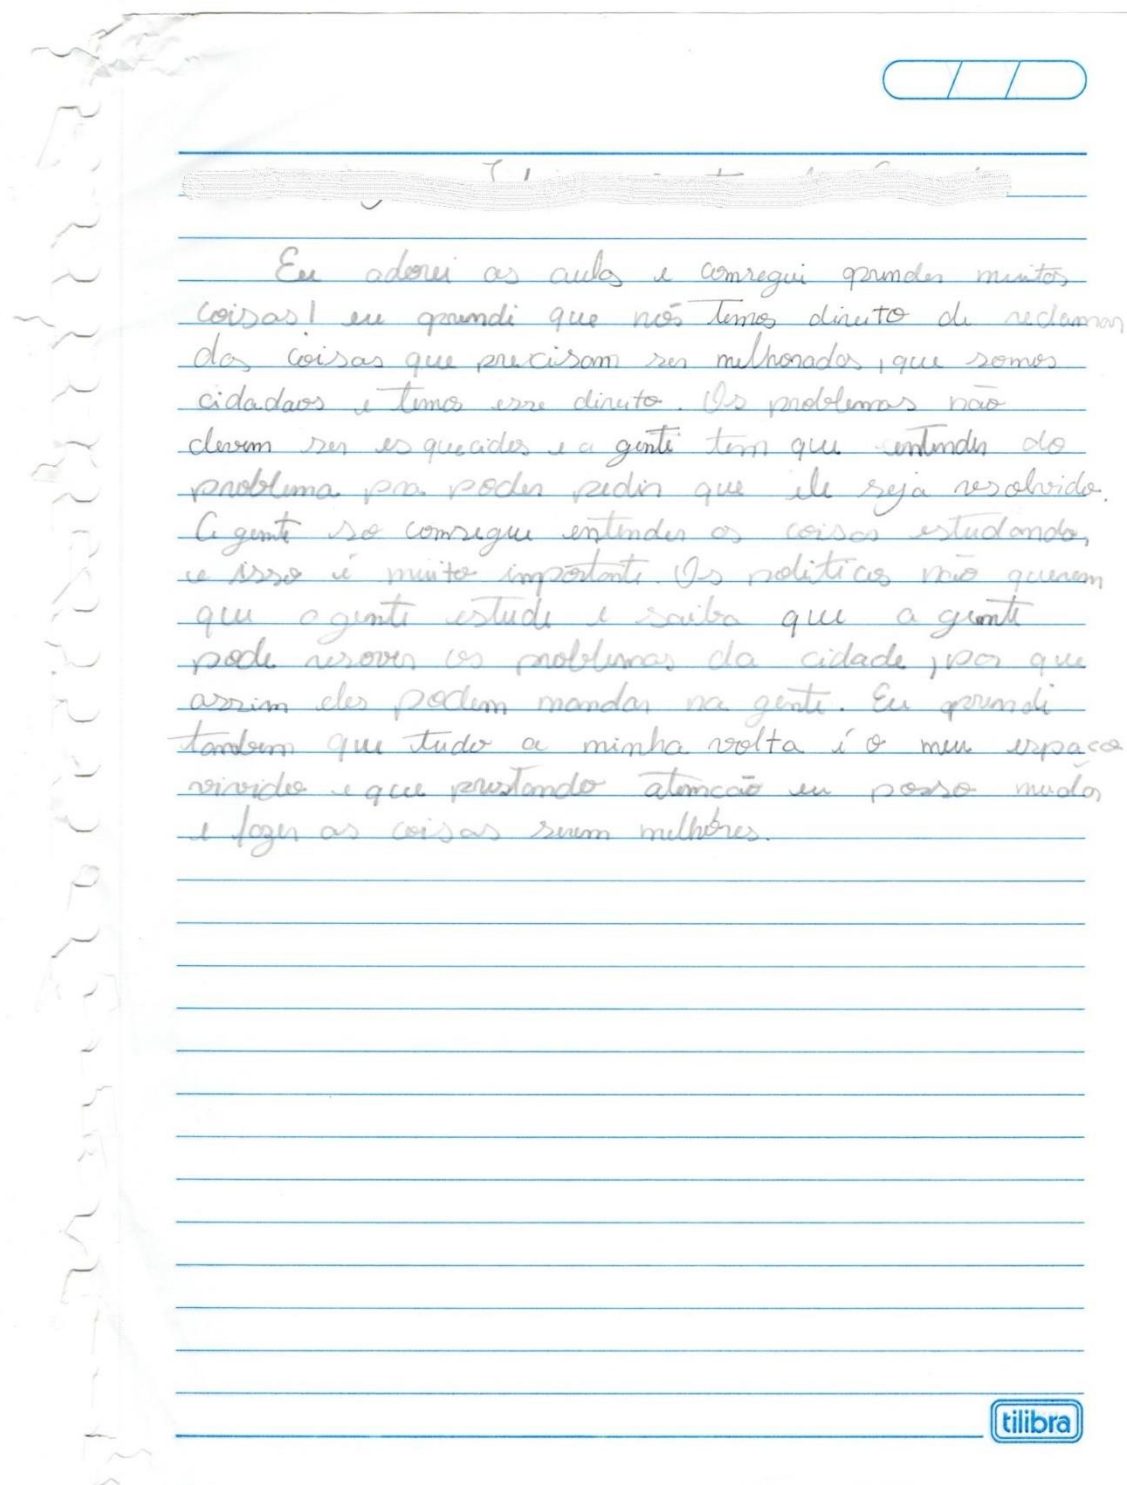 Eu adorei as aulas e comsegui aprender muitas
coisas! eu aprendi que nós temos direito de reclamar
das coisas que precisam ser melhoradas, que somos
cidadaos e temos esse direito. Os problemas não
devem ser esquecidos e a gente tem que entender do
problema pra poder pedir que ele seja resolvido.
A gente so comsegue entender as coisas estudando,
e isso é muito importante. Os politicos não querem
que a gente estude e saiba que a gente
pode resover os problemas da cidade, por que
assim eles podem mandar na gente. Eu aprendi
tambem que tudo a minha volta é o meu espaço
vivido e que prestando atencão eu posso mudar
e fazer as coisas serem melhores.
tilibra